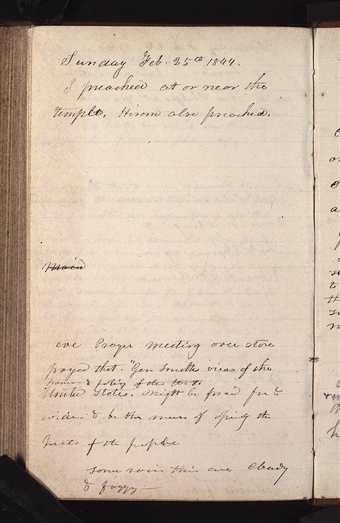 Sunday Feb. 25th 1844.
I preached at or near the
Temple. Hirom also preached.
eve Prayer Meeting over store
prayed that "Gen Smiths views of the
power & policy of the
United States. Might be
wide & be the means of the
hearts of the people
some rain this eve Cloudy
& foggy